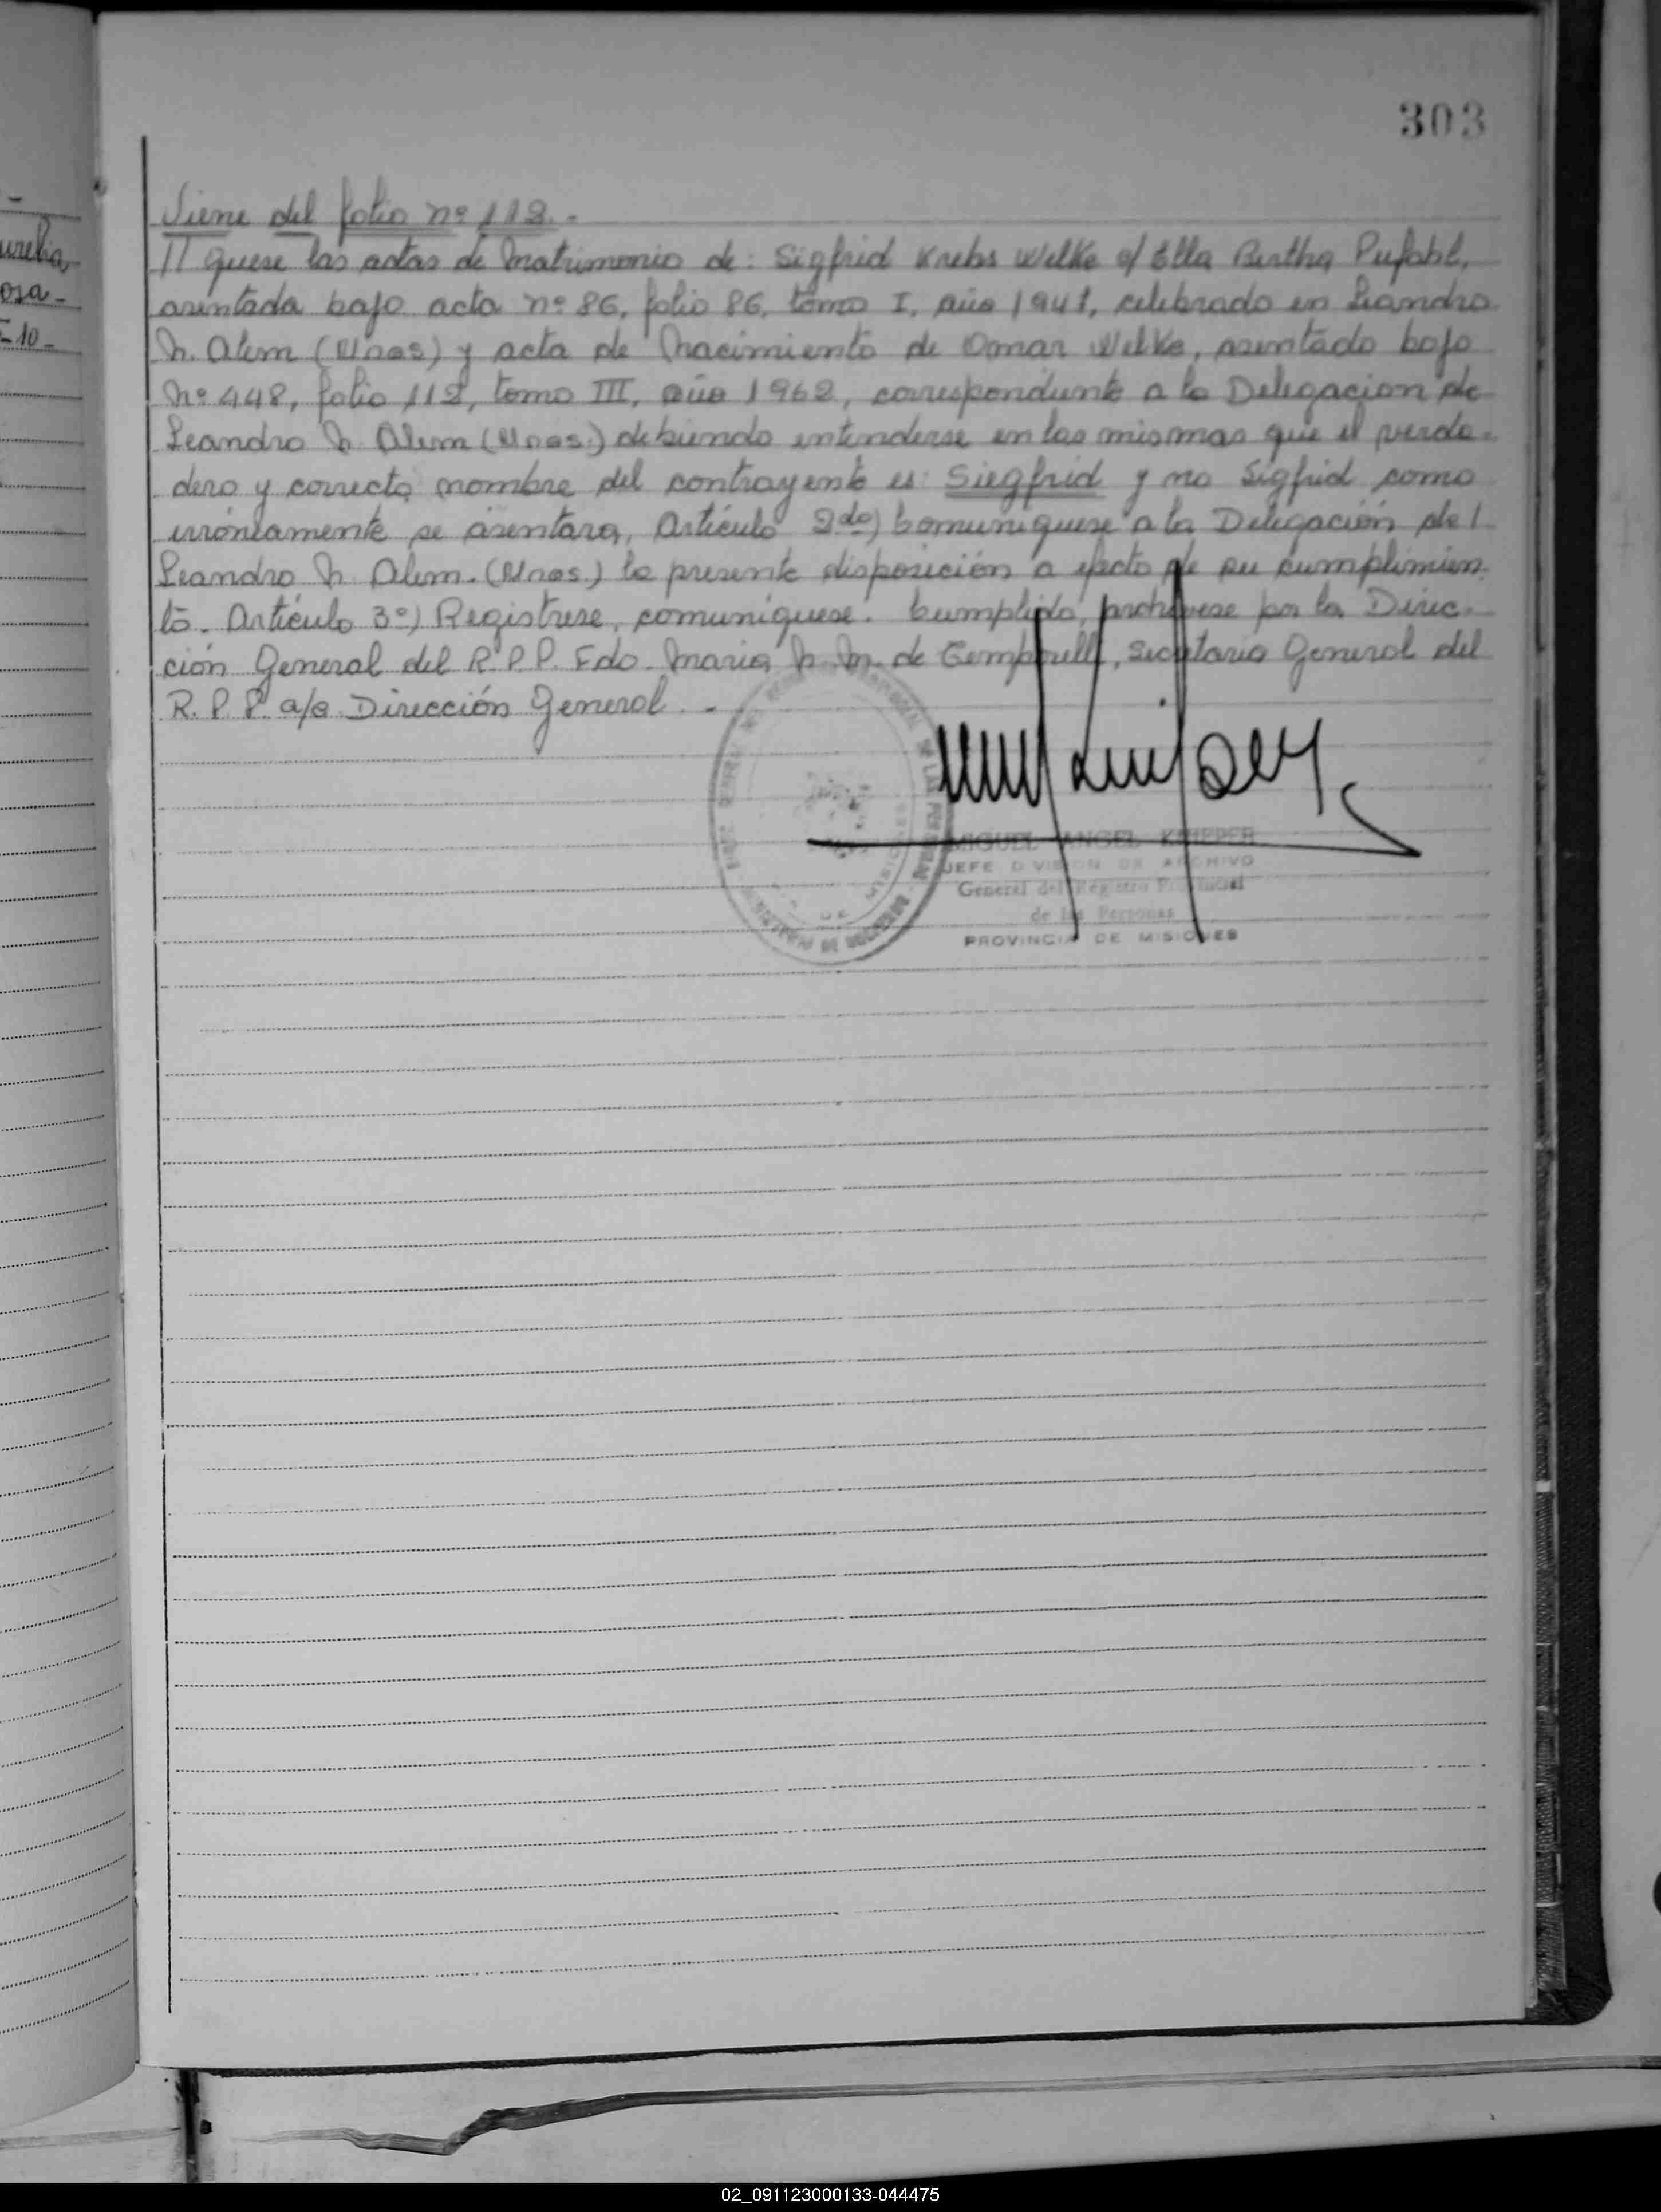 303
urelia
osa-
-10-
Viene del folio nº 112.-
// quese las actas de Matrimonio de: Sigfrid Krebs Welke c/ Ella Bertha Pufahl,
asentada bajo acta nº 86, folio 86, tomo I, año 1941, celebrado en Leandro
N. Alem (Mnes) y acta de Nacimiento de Omar Welke, asentado bajo
Nº 448, folio 112, tomo III, año 1962, correspondiente a la Delegacion de
Leandro N. Alem (Mnes.) debiendo entenderse en las mismas que el verda-
dero y correcto nombre del contrayente es: Siegfrid y no Sigfrid como
erróneamente se asentara, Artículo 2do) Comuniquese a la Delegación de /
Leandro N. Alem. (Mnes.) la presente disposición a efecto de su cumplimien-
to. Artículo 3º) Registrese, comuníquese. Cumplido, archivese por la Direc-
ción General del R.P.P. Fdo. Maria N. M. de, Secretaria General del
R.P.P. a/c Dirección General.-
MIGUEL ANGEL KNIPPER
JEFE DIVISION DE ARCHIVO
General del Registro Provincial
de las Personas
PROVINCIA DE MISIONES
02_091123000133-044475